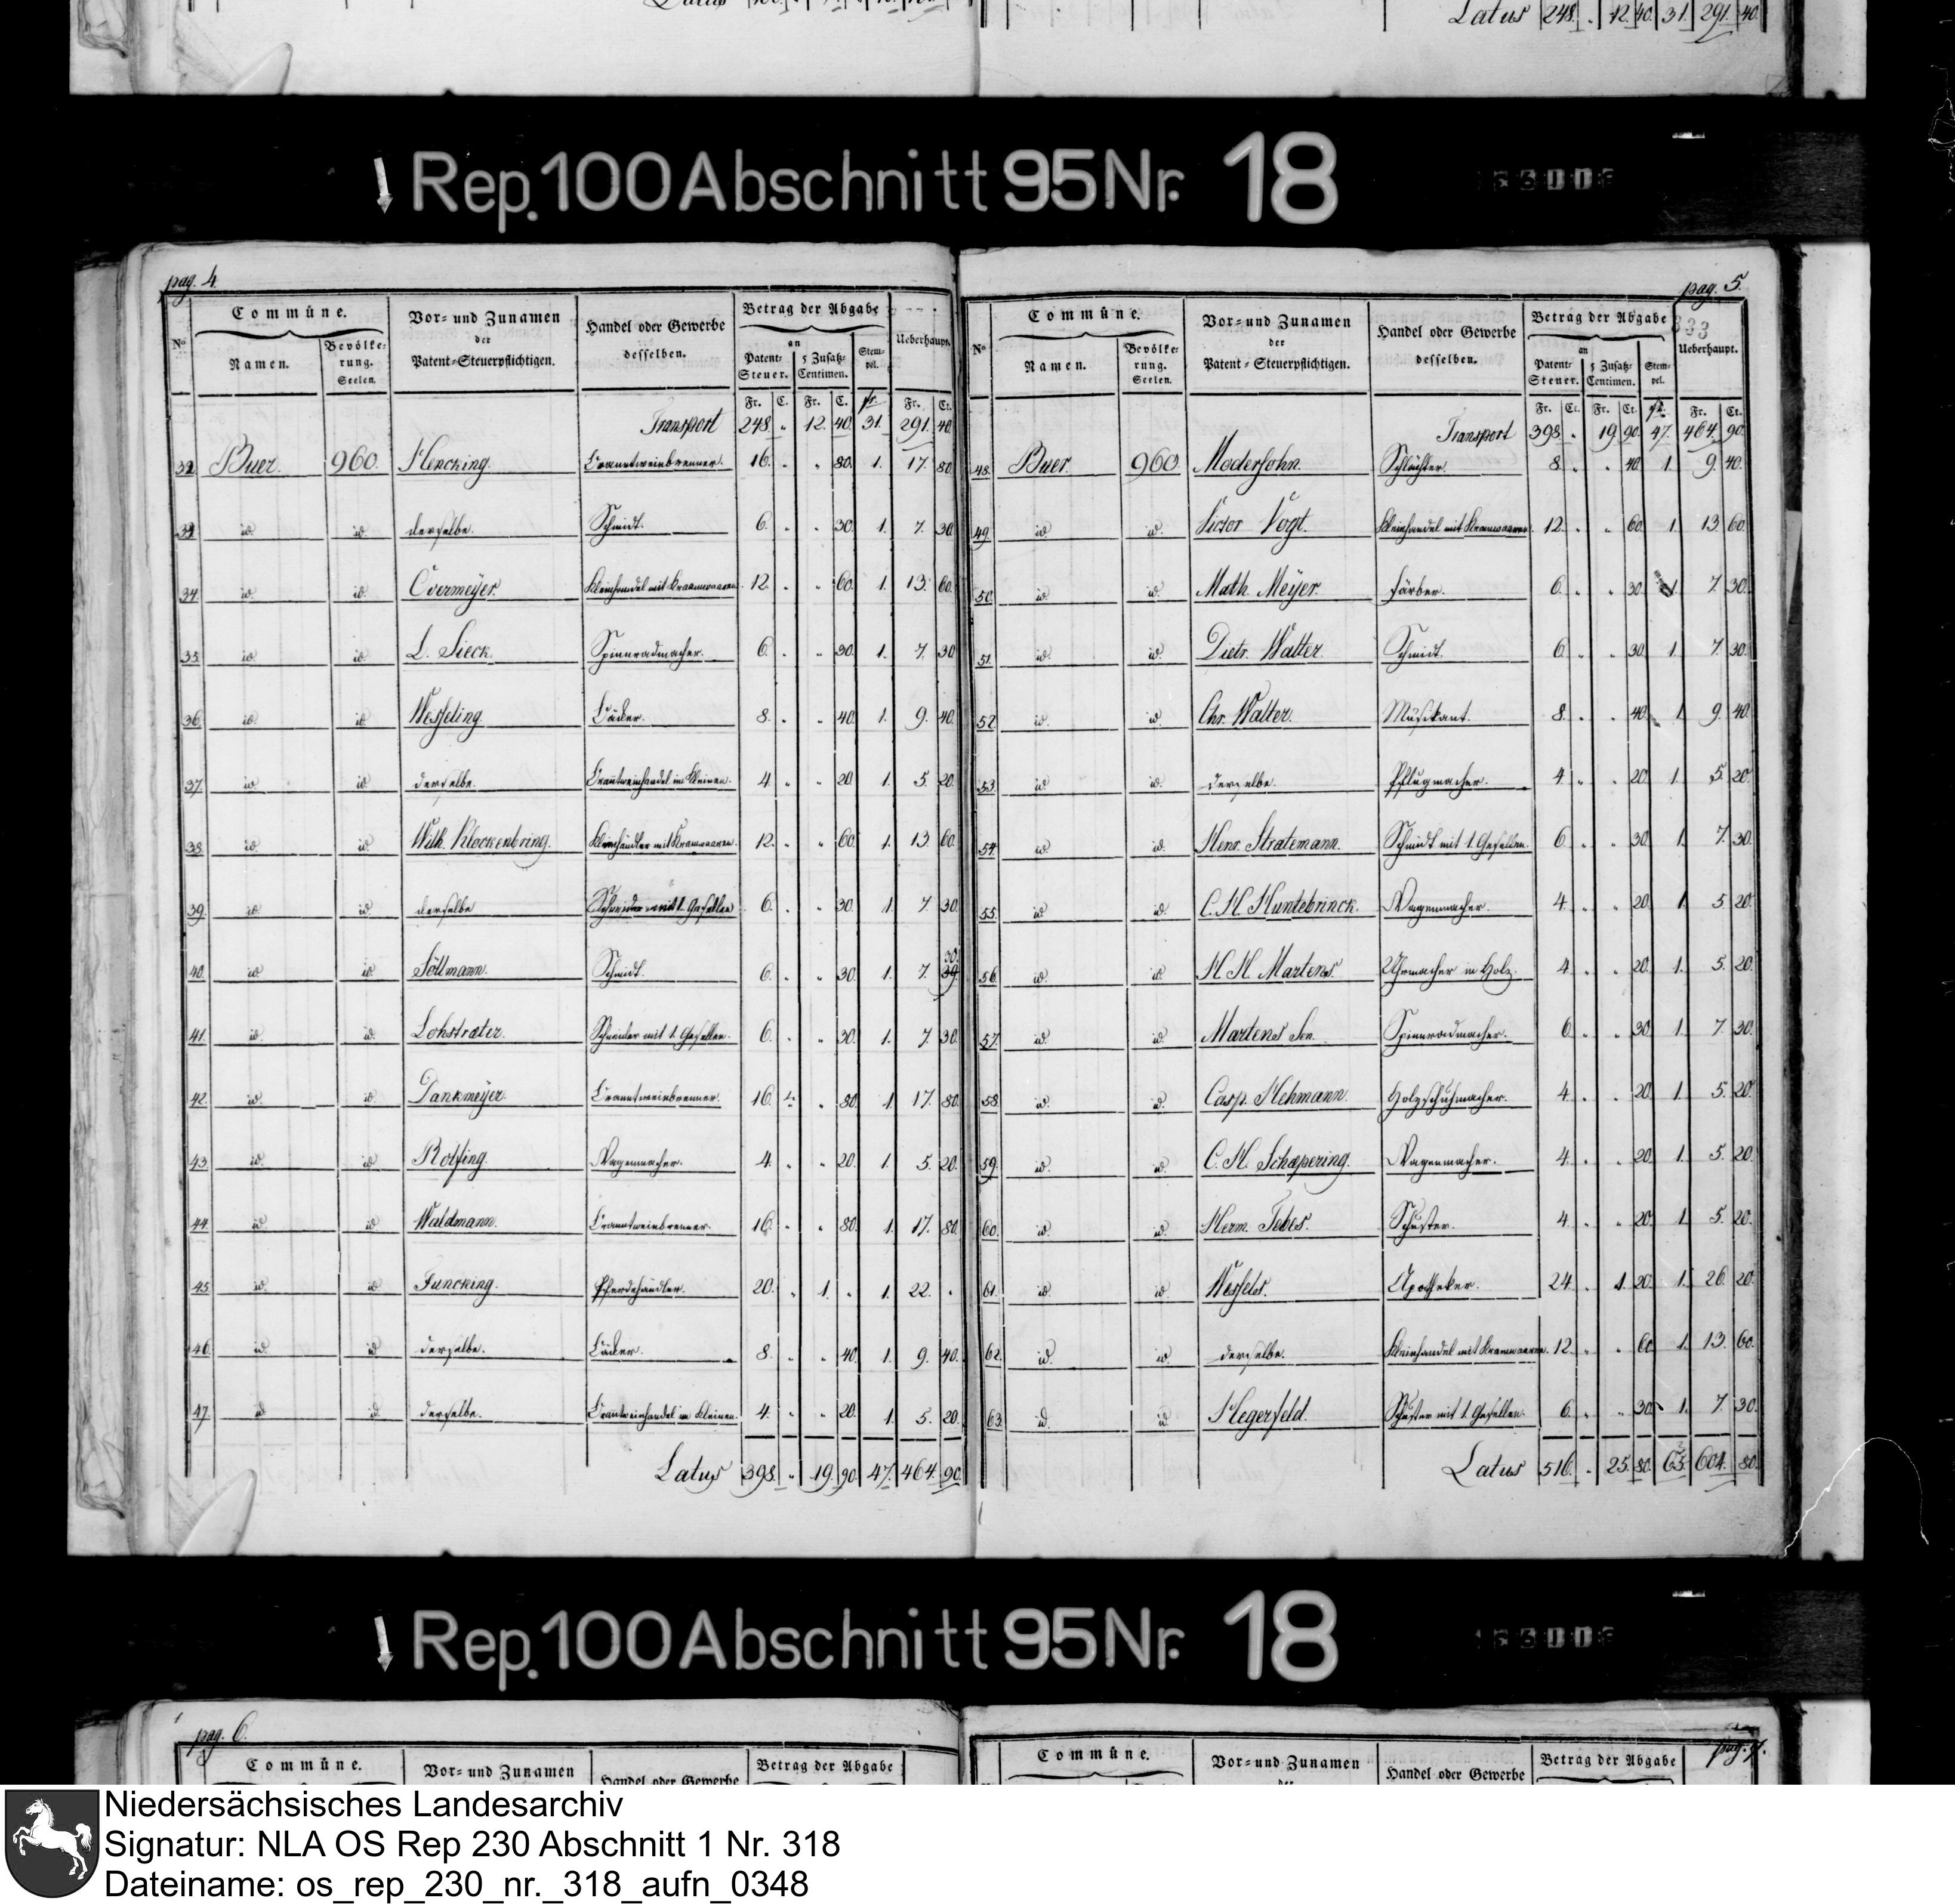 Latus 248. " 12. 40. 31. 291. 40.
Rep. 100 Abschnitt 95 Nr. 18
pag. 4.
No Commüne. Vor= und Zunamen der Patent=Steuerpflichtigen. Handel oder Gewerbe desselben. Betrag der Abgabe an Ueberhaupt.
Namen. Bevölke=rung. Seelen. Patent=Steuer. 5 Zusatz=Centimen. Stem=pel.
Fr. C. Fr. C. fr. Fr. Ct.
Transport 248. " 12. 40. 31. 291. 40.
32. Buer. 960. Hencking. Branntweinbrenner. 16. " " 80. 1. 17. 80.
33. id. id. derselbe. Schmidt. 6. " " 30. 1. 7. 30.
34. id. id. Overmeyer. Kleinhandel mit Kramwaaren. 12. " " 60. 1. 13. 60.
35. id. id. L. Sieck. Spinnradmacher. 6. " " 30. 1. 7. 30
36. id. id. Wesseling. Bäcker. 8. " " 40. 1. 9. 40.
37. id. id. derselbe. Branntweinhandel im Kleinen. 4. " " 20. 1. 5. 20.
38. id. id. Wilh. Klockenbring. Kleinhändler mit Kramwaaren. 12. " " 60. 1. 13. 60.
39. id. id. derselbe Schneider mit 1. Gesellen 6. " " 30. 1. 7. 30.
40. id id Söllmann. Schmidt. 6. " " 30. 1. 7. 30.
41. id. id. Lohstrater. Schneider mit 1. Gesellen. 6. " " 30. 1. 7. 30.
42. id. id. Dankmeyer. Branntweinbrenner. 16. " " 80. 1. 17. 80.
43. id. id Rolfing. Wagenmacher. 4. " " 20. 1. 5. 20.
44. id. id Waldmann. Branntweinbrenner. 16. " " 80. 1. 17. 80.
45. id. id Juncking. Pferdehändler. 20. " 1. " 1. 22. "
46. id id derselbe. Bäcker. 8. " " 40. 1. 9. 40.
47. id id. derselbe. Branntweinhandel im Kleinen. 4. " " 20. 1. 5. 20.
Latus 398. " 19. 90. 47. 464. 90.
pag. 5.
333
No Commüne. Vor= und Zunamen der Patent=Steuerpflichtigen. Handel oder Gewerbe desselben. Betrag der Abgabe an Ueberhaupt.
Namen. Bevölke=rung. Seelen. Patent=Steuer. 5 Zusatz=Centimen. Stem=pel.
Fr. Ct. Fr. Ct. fr. Fr. Ct.
Transport 398. " 19. 90. 47. 464. 90.
48. Buer. 960. Modersohn. Schlächter. 8. " " 40. 1. 9. 40.
49. id id. Victor Vogt. Kleinhandel mit Kramwaaren. 12. " " 60. 1. 13. 60.
50. id. id. Math. Meyer. Färber. 6. " " 30. 1. 7. 30.
51. id. id. Dietr. Walter. Schmidt. 6. " " 30. 1. 7. 30.
52. id. id. Chr. Walter. Musikant. 8. " " 40. 1. 9. 40.
53. id. id. derselbe. Pflugmacher. 4. " " 20. 1. 5. 20.
54. id id. Henr. Stratemann. Schmidt mit 1. Gesellen. 6. " " 30. 1. 7. 30.
55. id id. C. H. Huntebrinck. Wagenmacher. 4. " " 20. 1. 5 20.
56. id. id. H. H. Martens. Uhrmacher in Holz. 4. " " 20. 1. 5. 20.
57. id. id. Martens Sen. Spinnradmacher. 6. " " 30. 1. 7. 30.
58. id. id. Casp. Hehmann. Holzschuhmacher. 4. " " 20. 1. 5. 20.
59. id. id. C. H. Schæpering. Wagenmacher. 4. " " 20. 1. 5. 20.
60. id. id. Herm. Tebes. Schuster. 4. " " 20. 1. 5. 20.
61. id. id. Wessels. Apotheker. 24. " 1. 20. 1. 26. 20.
62. id. id. derselbe. Kleinhandel mit Kramwaaren. 12. " " 60 1. 13. 60.
63. id. id. Hegerfeld. Schuster mit 1. Gesellen. 6. " " 30. 1. 7. 30.
Latus 516. " 25. 80. 63. 604. 80.
Rep. 100 Abschnitt 95 Nr. 18
pag. 6.
Commüne. Vor= und Zunamen Handel oder Gewerbe Betrag der Abgabe
pag. 7.
Commüne. Vor= und Zunamen Handel oder Gewerbe Betrag der Abgabe
Niedersächsisches Landesarchiv
Signatur: NLA OS Rep 230 Abschnitt 1 Nr. 318
Dateiname: os_rep_230_nr._318_aufn_0348